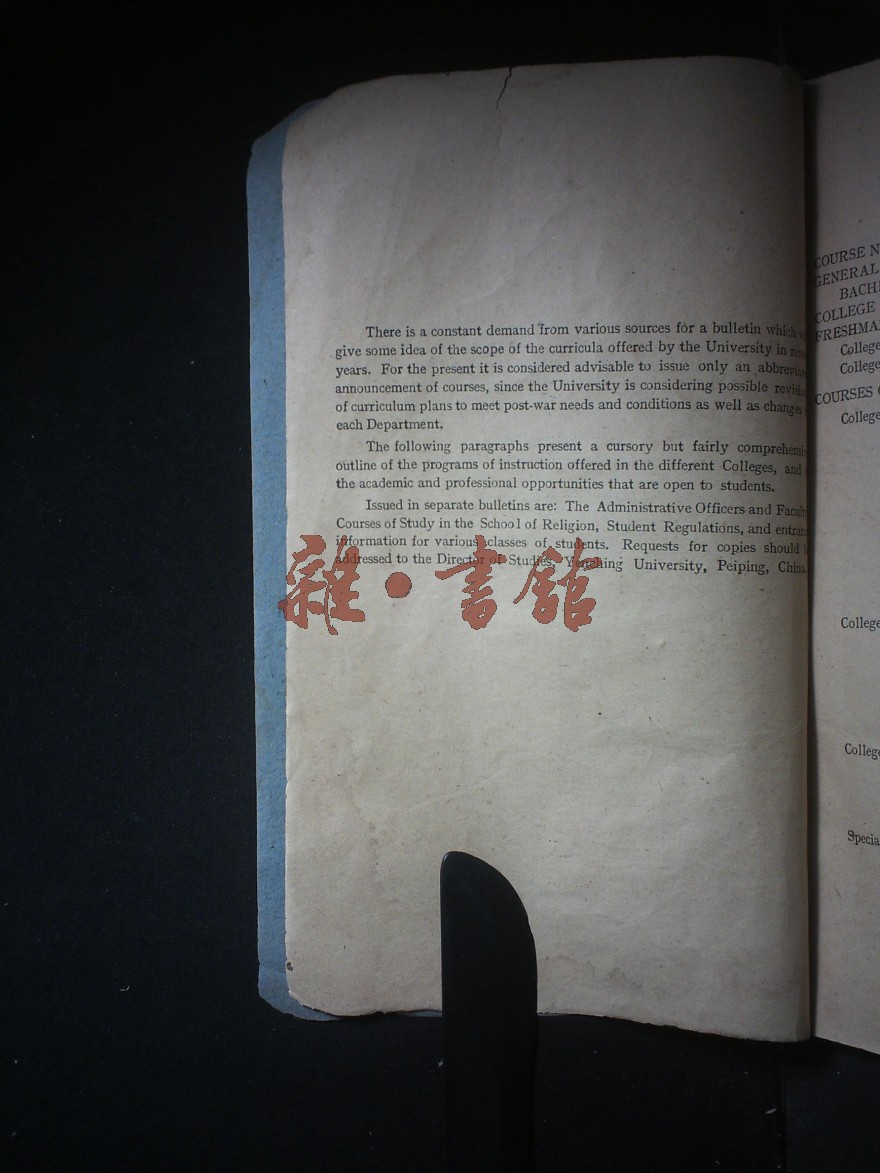 There is a constant demand from various sources for a bulletin which
give some idea of the scope of the curricula offered by the University in
years. For the present it is considered advisable to issue only an
announcement of courses, since the University is considering possible
of curriculum plans to meet post-war needs and conditions as well as changes
each Department.
The following paragraphs present a cursory but fairly
outline of the programs of instruction offered in the different Colleges, and
the academic and professional opportunities that are open to students.
Issued in separate bulletins are: The Administrative Officers and
Courses of Study in the School of Religion, Student Regulations, and
information for various classes of students. Requests for copies should
addressed to the Director of Studies, Yenching University, Peiping, China.
雜·書館
COURSE N
GENERAL
COLLEGE
College
College
COURSES
College
College
College